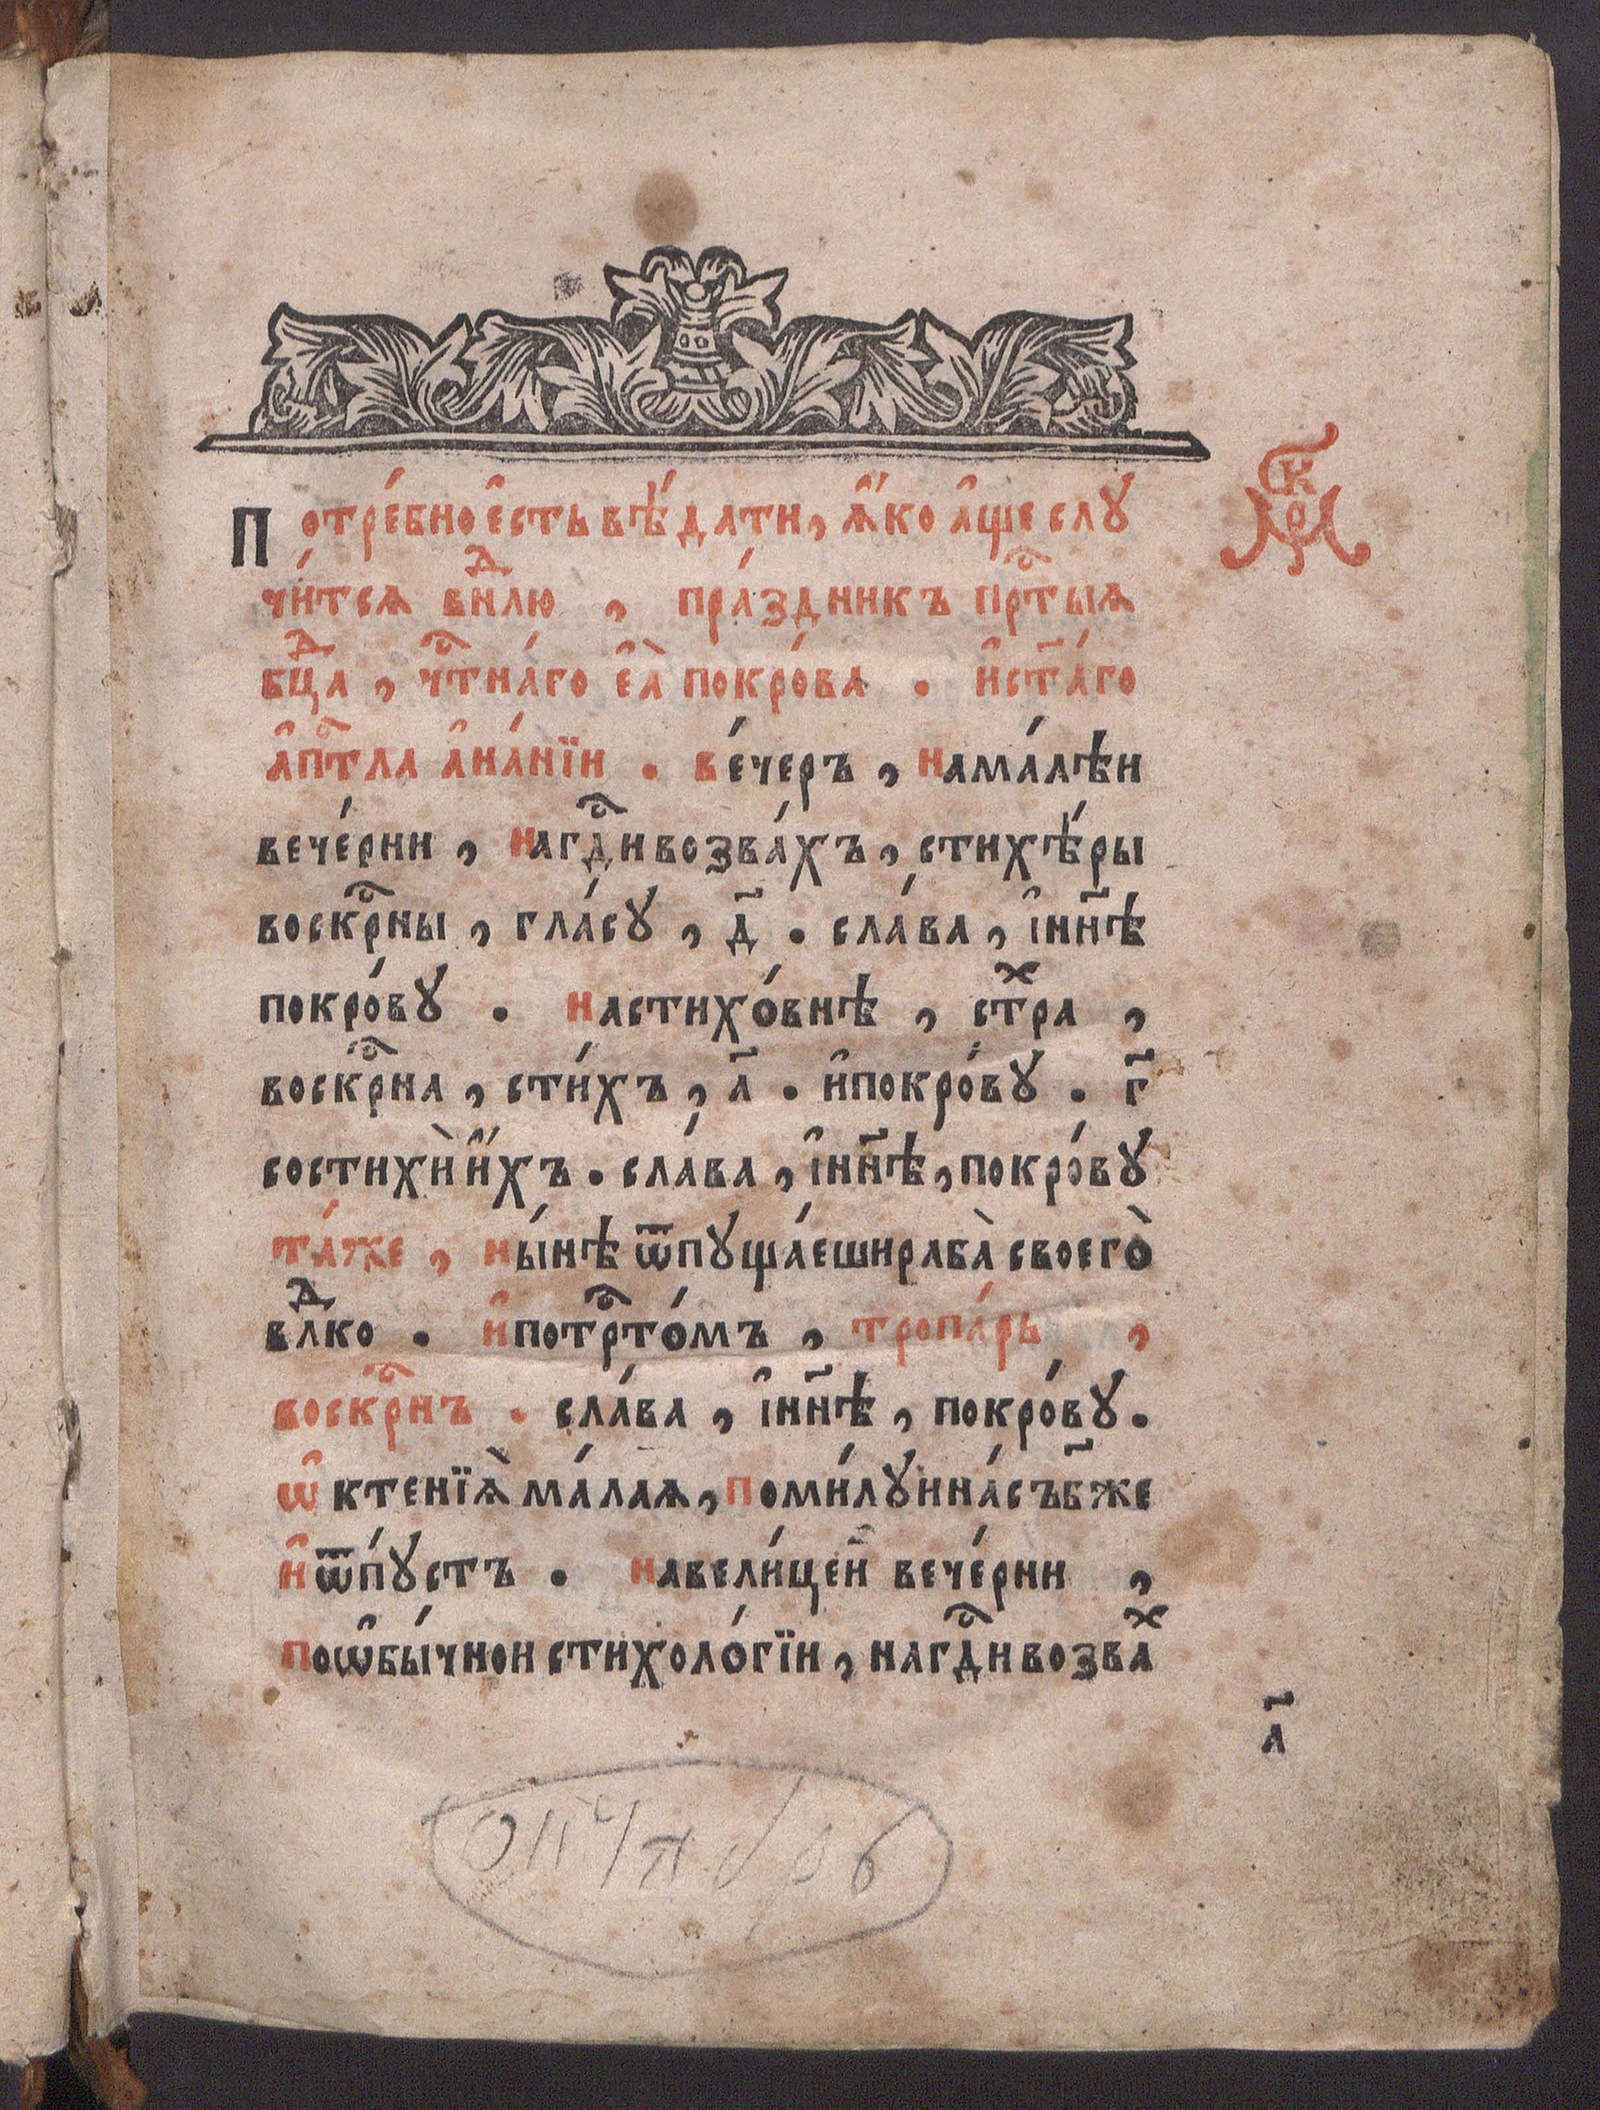 Потре́бно є҆́сть вѣ́дати, ꙗ҆́ко а҆́ще слꙋ
чи́тсѧ внⷣлю , пра́здникъ прⷭ҇тыѧ
бцⷣа , чⷭ҇тна́го є҆ѧ̀ покро́ва . и҆ ст҃а́го
а҆пⷭ҇тла а҆на́нїи . ве́черъ , на ма́лѣи
вече́рни , на гдⷭ҇и возва́хъ , стихѣ́ры
воскрⷭ҇ны , гла́сꙋ , д҃ . сла́ва , і҆ нн҃ѣ
покро́вꙋ . на стихо́внѣ , стрⷯа ,
воскрⷭ҇на , сти́хъ , а҃ . и҆ покро́вꙋ . г҃
со стихѝ и҆́хъ . сла́ва , і҆ нн҃ѣ , покро́вꙋ
та́же , ны́нѣ ѿпꙋща́еши раба̀ своего̀
влⷣко . и҆ по трⷭ҇то́мъ , тропа́рь ,
воскрⷭ҇нъ . сла́ва , і҆ нн҃ѣ , покро́вꙋ .
ѡ҆ктенїѧ̀ ма́лаѧ , поми́лꙋи на́съ бж҃е
и҆ ѿпꙋ́стъ . на вели́цеи вече́рни ,
по ѡ҆бы́чнои стихоло́гїи , на гдⷭ҇и возваⷯ
а҃